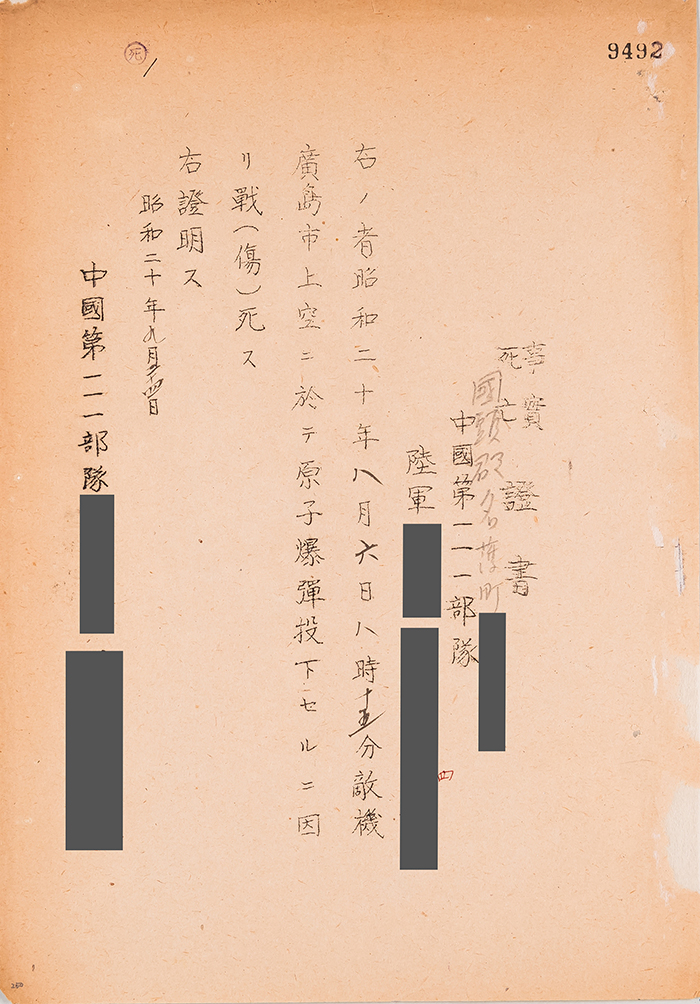 9492
死
事實
死亡
證書
國頭郡名護町
中國第一一一部隊
陸軍
四
右ノ者昭和二十年八月六日八時十五分敵機
廣島市上空ニ於テ原子爆彈投下セルニ因
リ戰(傷)死ス
右證明ス
昭和二十年九月二十四日
中國第一一一部隊
250